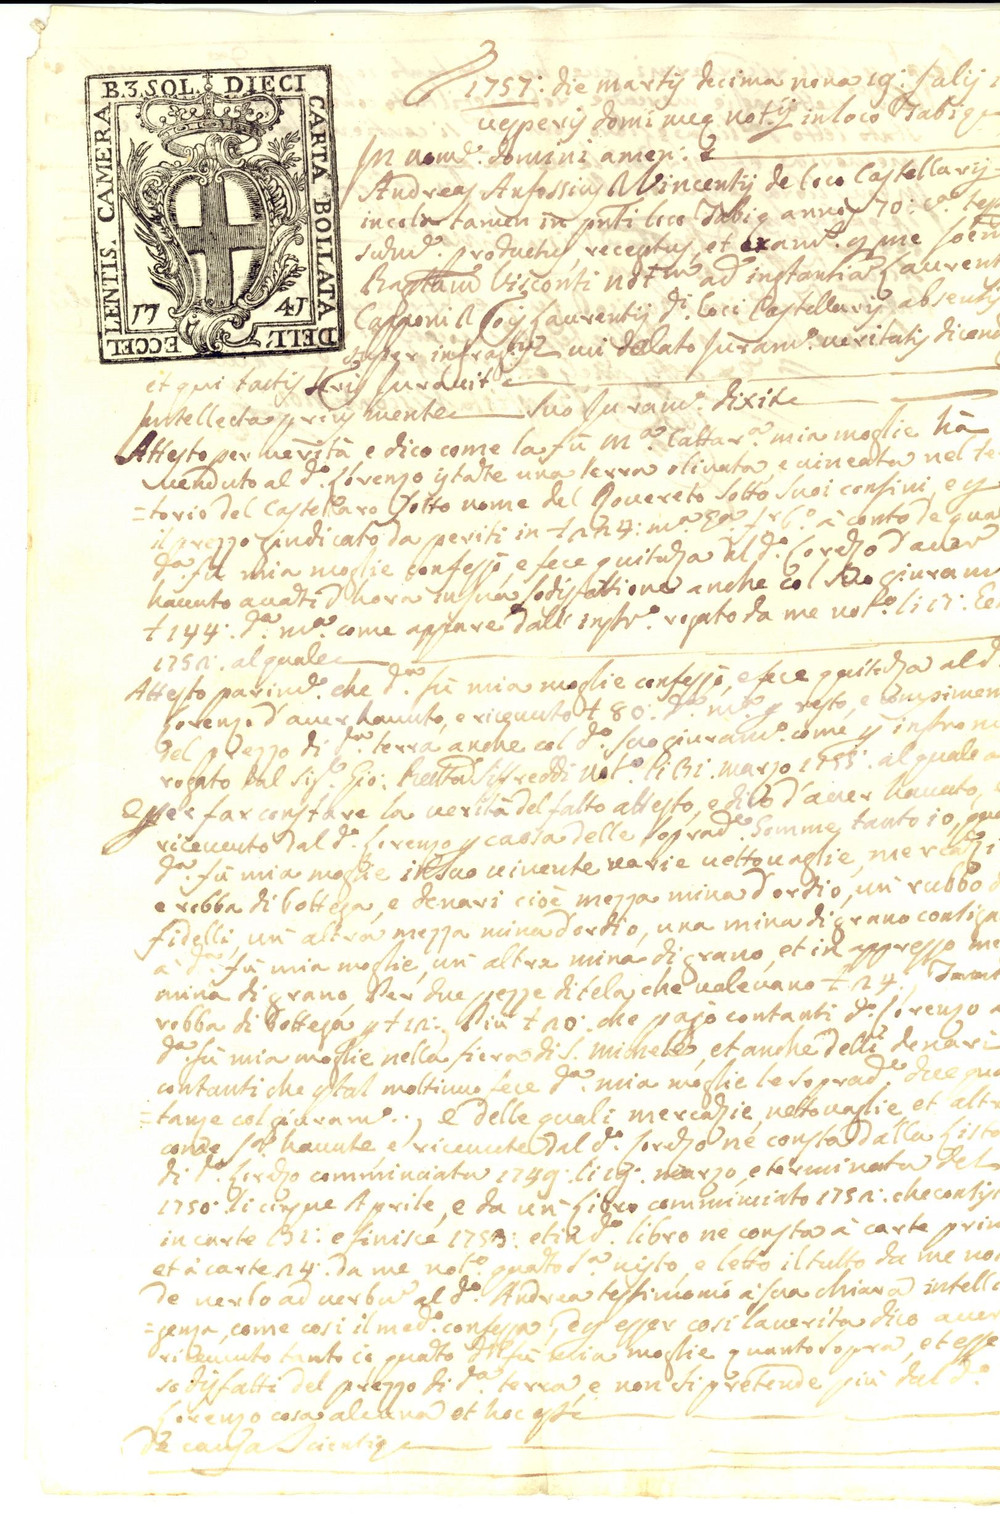 B.3. SOL. DIECI
CARTA BOLLATA
DELL' ECCEL
LENTIS. CAMERA
17 41
1757: die martis decima nona 19: Julij
vesperis domi meæ notarij in loco Tabiæ
In nom.e domini amen:
Andreas Anfossius Vincentij de loco Castellarij
incola tamen in pnti loco Tabiæ annor 70: c.a
sum.e productus, receptus, et exam.s per me
Baptam Visconti not.m ad instantia Laurent
Capponi Laurentij d.i loci Castellarij absentis
super infrascriptis cui delato Juram.o veritatis dicend
et qui tactis Juravit
Intellecta prius mente suo Juram.o dixit
Attesto per verità e dico come la fù m.a Cattar.a mia moglie hà
venduto al d.o Lorenzo una terra olivata, e vineata nel te
=torio del Castellaro sotto nome del Rovereto sotto suoi confini, e
il prezzo giudicato da periti in £ 224: à conto de qua
d.a fù mia moglie confessò, e fece quitanza al d.o Lorenzo d'aver
havuto avanti d'hora in sua sodisfattione anche col suo giuram
£ 144: d.a m.a come appare dall' instr.o rogato da me not.o li 17:
1752: al quale
Attesto parim.e che d.a fù mia moglie confessò, e fece quitanza al d
Lorenzo d'aver havuto, e ricevuto £ 80: d.a m.a per resto, e compimen
del prezzo di d.a terra anche col d.o suo giuram.o come per instro
rogato dal Sig.r Gio: Batta Siffreddi Not.o li 31: marzo 1755: al quale
Esser far constare la verità del fatto attesto, e dico d'aver havuto,
ricevuto dal d.o Lorenzo per causa delle soprad.e somme tanto io, qua
d.a fù mia moglie in suo vivente varie vettovaglie, mercanzi
e robba di bottega, e denari cioè mezza mina d'ordio, un rubbo d
fidelli, un' altra mezza mina d'ordio, una mina di grano consign
à d.a fù mia moglie, un' altra mina di grano, et in appresso me
mina di grano, Per due pezze di tela che valevano £ 24.,
robba di bottega per £ 12:. Più £ 20: che pagò contanti d.o Lorenzo a
d.a fù mia moglie nella fiera di S. Michele, et anche delli denari
contanti che per tal mottivo fece d.a mia moglie le soprad.e due qua
=tanze col giuram.o., E delle quali mercanzie, vettovaglie, et altr
come sop.a havute e ricevute dal d.o Lorenzo ne consta dalla lista
di d.o Lorenzo comminciata 1749: li 19: marzo, e terminata del
1750: li cinque Aprile, e da un Libro comminciato 1752: che consis
in carte 131: e finisce 1753: et in d.o libro ne consta à carte prim
et à carte 24: da me not.o visto, e letto il tutto da me no
de verbo ad verbum al d.o Andrea testimonio à sua chiara intelle
=genza, come così il med.o confessa, ed esser così la verità dico aver
ricevuto tanto io quanto d.a fù mia moglie quanto sopra, et esse
sodisfatti del prezzo di d.a terra, e non si pretende più dal d.o
Lorenzo cosa alcuna et hoc est
De causa scientiæ